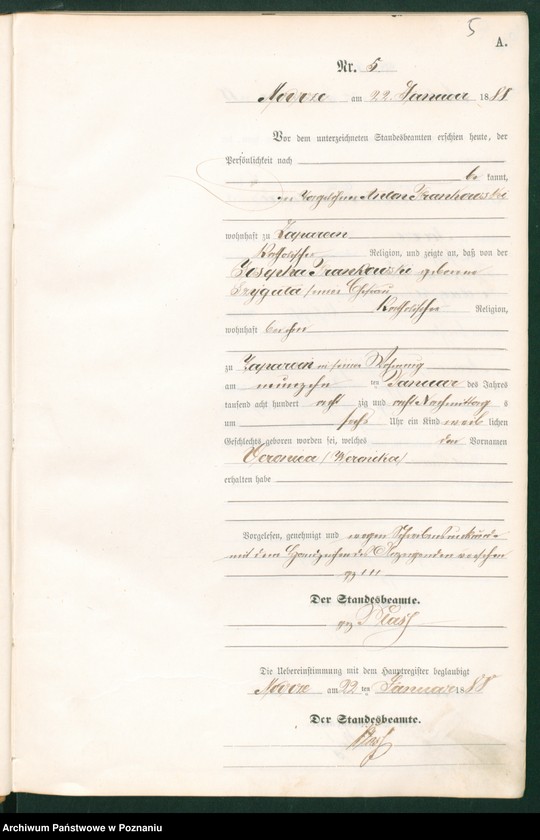 5
A.
Nr. 5
Modrze am 22 Januar 1888
Vor dem unterzeichneten Standesbeamten erschien heute, der
Persönlichkeit nach
be kannt,
der Anton Frankowski
wohnhaft zu
Katholischer Religion, und zeigte an, daß von der
Frankowski geborene
Przygula seiner Ehefrau
Katholischer Religion,
wohnhaft bei ihm
zu in seiner Wohnung
am neunzehn ten Januar des Jahres
tausend acht hundert acht zig und acht Nachmittag s
um sechs Uhr ein Kind weib lichen
Geschlechts geboren worden sei, welches den Vornamen
Veronica (Weronika)
erhalten habe
Vorgelesen, genehmigt und wegen Schreibensunkunde
mit dem Handzeichen des Anzeigenden versehen
gz +++
Der Standesbeamte.
gez
Die Uebereinstimmung mit dem Hauptregister beglaubigt
Modrze am 22 ten Januar 1888
Der Standesbeamte.
Archiwum Państwowe w Poznaniu